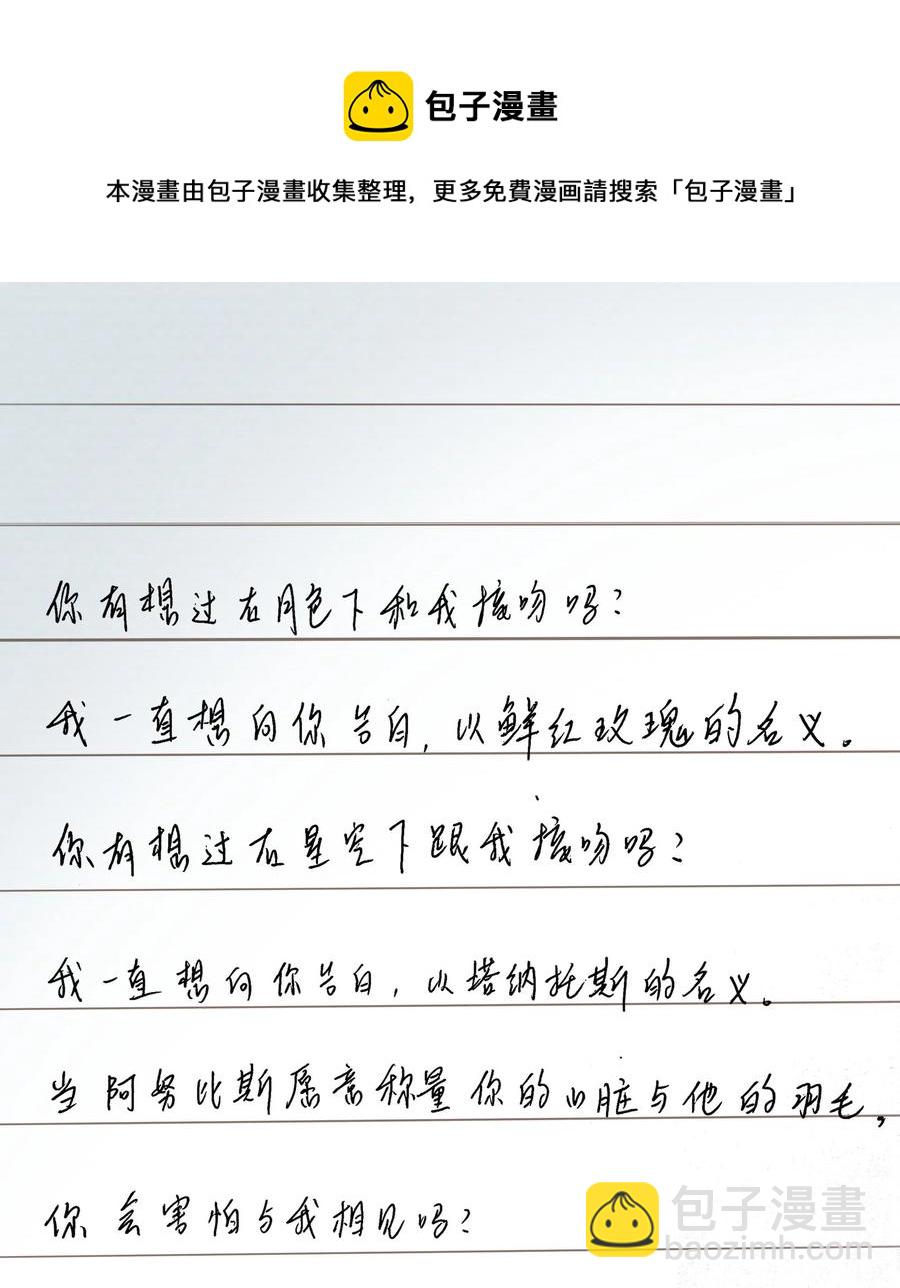 包子漫畫
本漫畫由包子漫畫收集整理，更多免費漫画請搜索「包子漫畫」
你有想过在月色下和我接吻吗?
我一直想向你告白，以鲜红玫瑰的名义。
你有想过在星空下跟我接吻吗?
我一直想向你告白，以塔纳托斯的名义。
当阿努比斯愿意称量你的心脏与他的羽毛，
你会害怕与我相见吗?
包子漫畫
baozimh.com